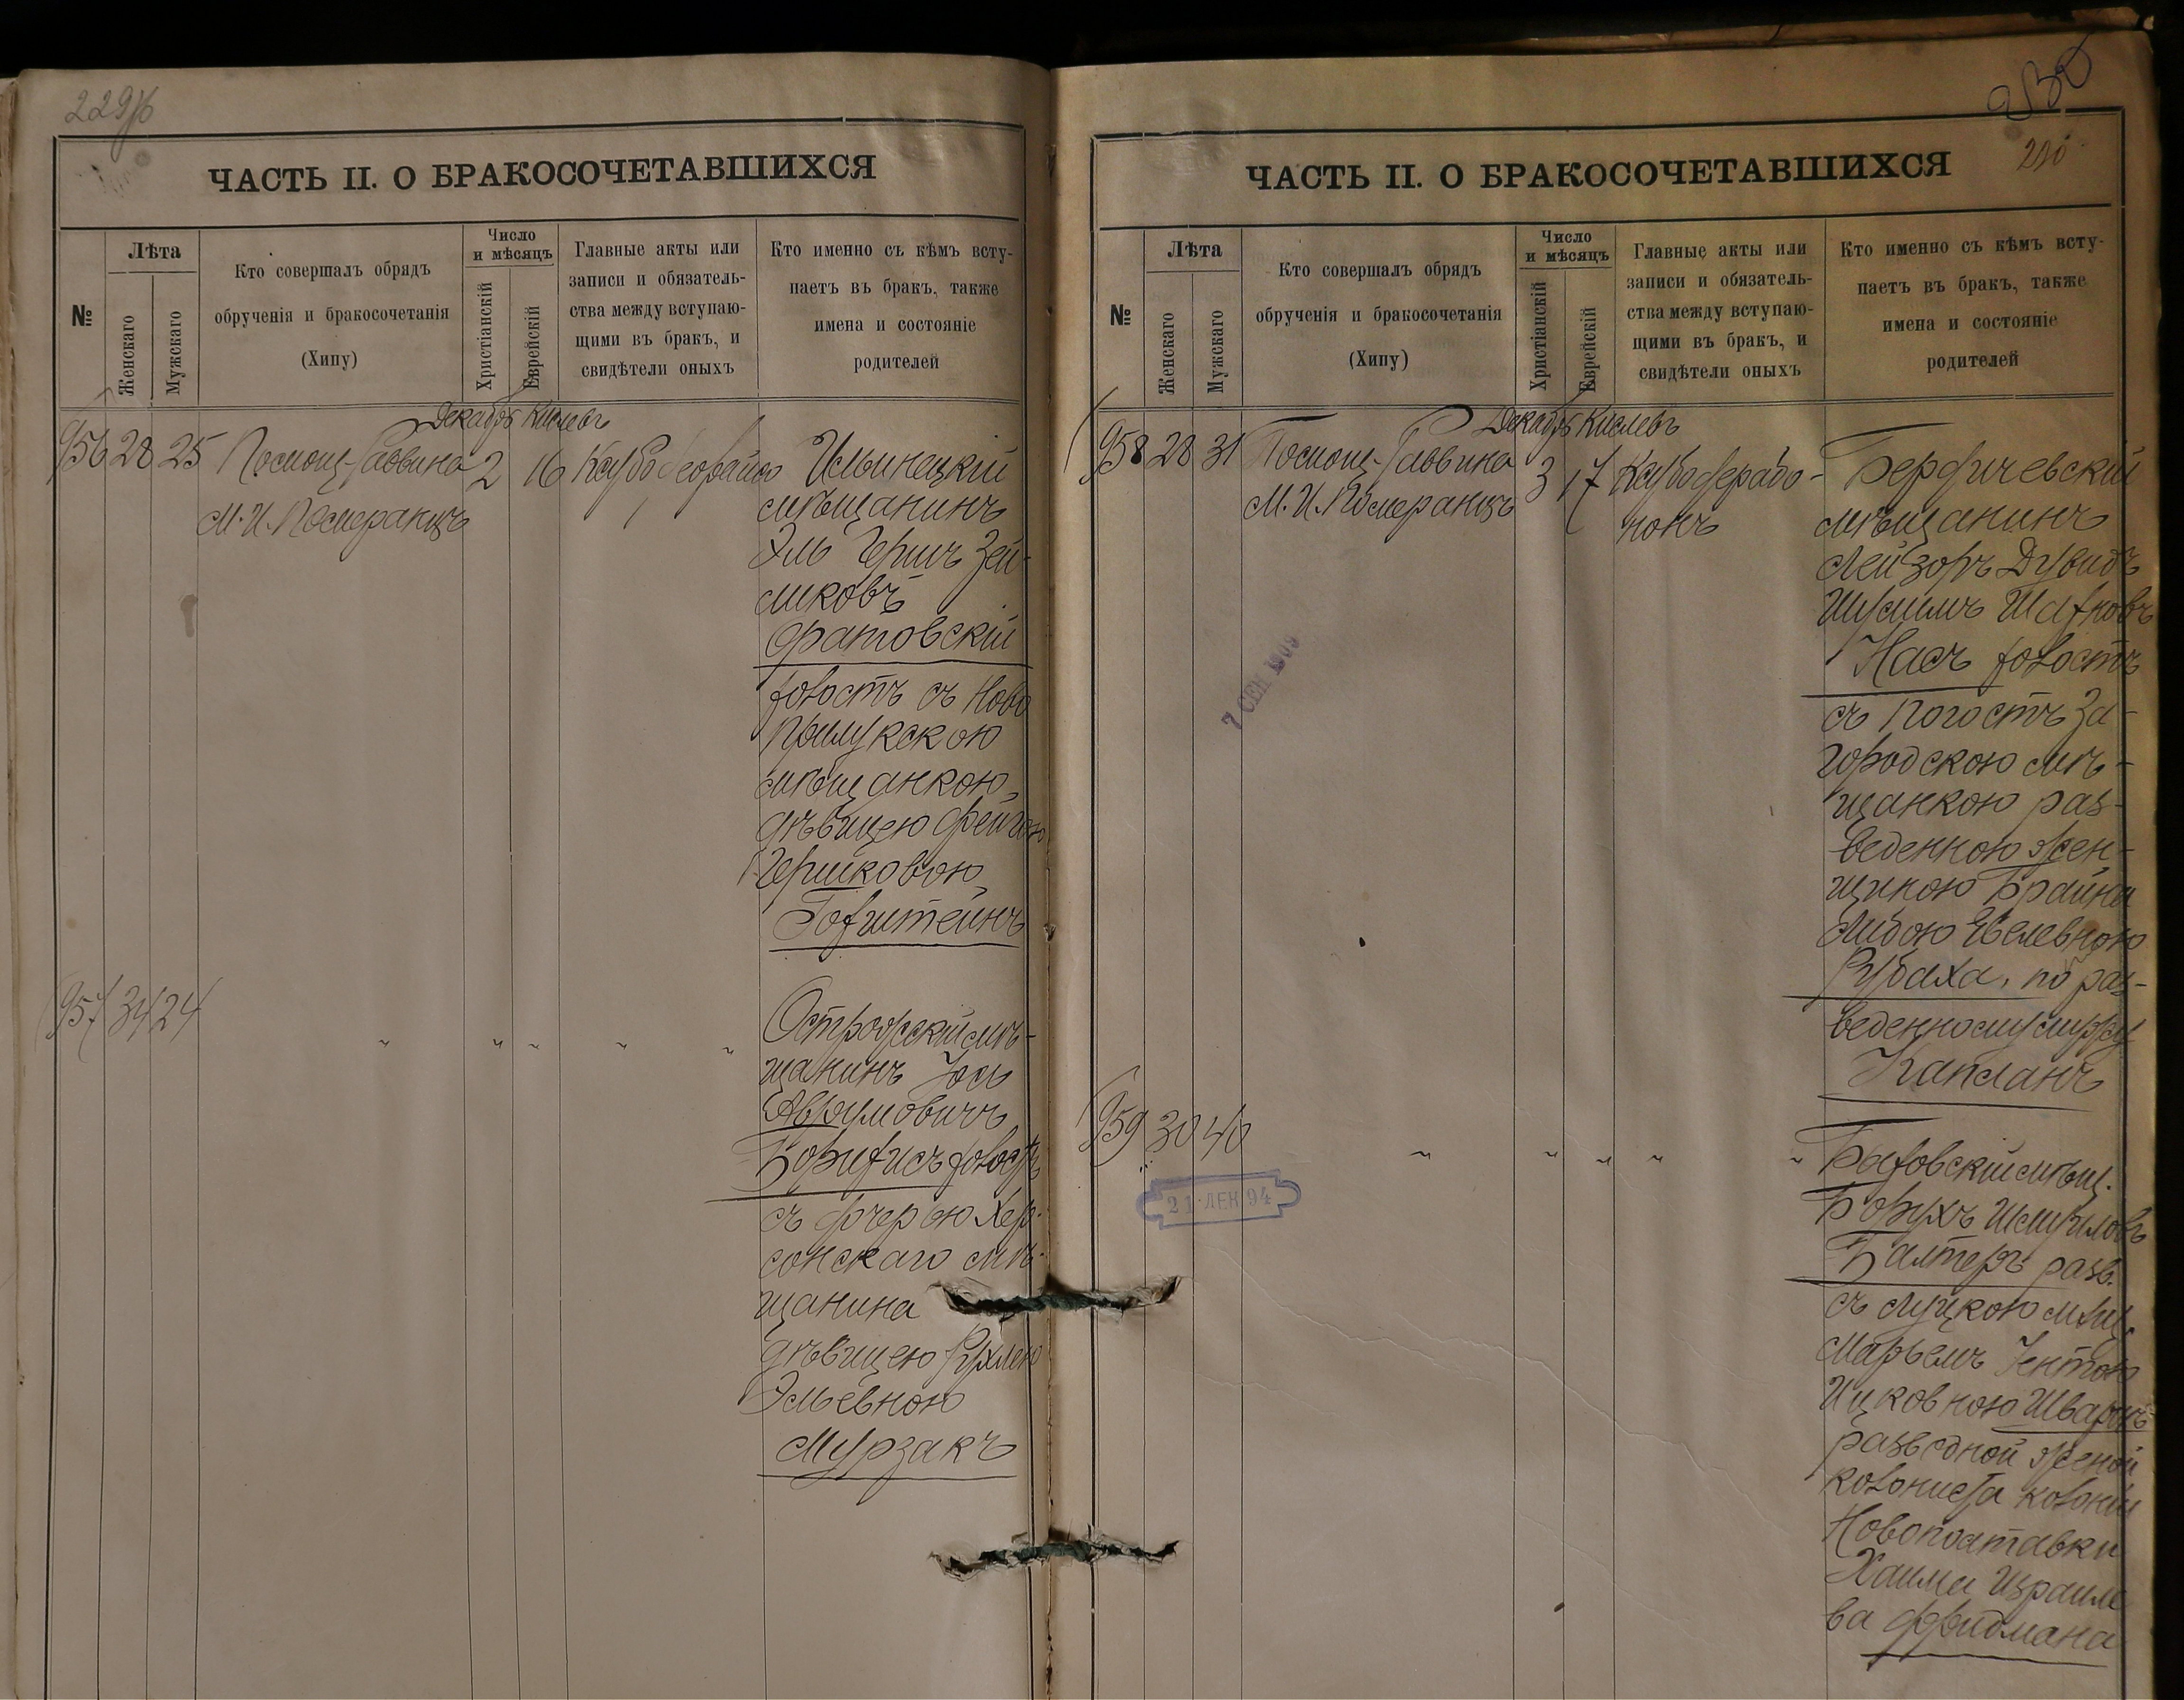 229об
ЧАСТЬ II. О БРАКОСОЧЕТАВШИХСЯ
№
Лѣта
Женскаго
Мужскаго
Кто совершалъ обрядъ
обрученія и бракосочетанія
(Хипу)
Число
и мѣсяцъ
Христіанскій
Еврейскій
Главные акты или
записи и обязатель-
ства между вступаю-
щими въ бракъ, и
свидѣтели оныхъ
Кто именно съ кѣмъ всту-
паетъ въ бракъ, также
имена и состояніе
родителей
Декабрь Кислевъ
956 28 25 Помощ-Раввина 2 16
М. И. Померанцъ
Ильинецкій
мѣщанинъ
Эль Гершъ Зей-
ликовъ
Оратовскій
холостъ съ Ново
Прилукскою
мѣщанкою,
дѣвицею Фейгою
Гершковою
Гохштейнъ
957 34 24
" " " " "
Острожскій мѣ-
щанинъ Іось
Аврумовичъ
холостъ
съ дочерью Хер-
сонскаго мѣ-
щанина
дѣвицею Рухлею
Эльевною
Мурзакъ
230
ЧАСТЬ II. О БРАКОСОЧЕТАВШИХСЯ
№
Лѣта
Женскаго
Мужскаго
Кто совершалъ обрядъ
обрученія и бракосочетанія
(Хипу)
Число
и мѣсяцъ
Христіанскій
Еврейскій
Главные акты или
записи и обязатель-
ства между вступаю-
щими въ бракъ, и
свидѣтели оныхъ
Кто именно съ кѣмъ всту-
паетъ въ бракъ, также
имена и состояніе
родителей
Декабрь Кислевъ
958 28 31 Помощ-Раввина 3 17
М. И. Померанцъ
Бердичевскій
мѣщанинъ
Лейзоръ Дувидъ
Насъ холостъ
съ Погостъ За-
городскою мѣ-
щанкою раз-
веденною жен-
щиною Брайна
Либою Евелевною
Рубаха, по раз-
веденному мужу
Капланъ
7 СЕН 1909
959 30 40
" " " " "
21 ДЕК 94
мѣщ.
Борухъ Шмуиловъ
Балтеръ разв.
съ Луцкою мѣщ.
Марьемъ Іентою
Ицковною Шварцъ
разводной женой
колониста колоніи
Новополтавки
Хаима Израиле
ва Фридмана